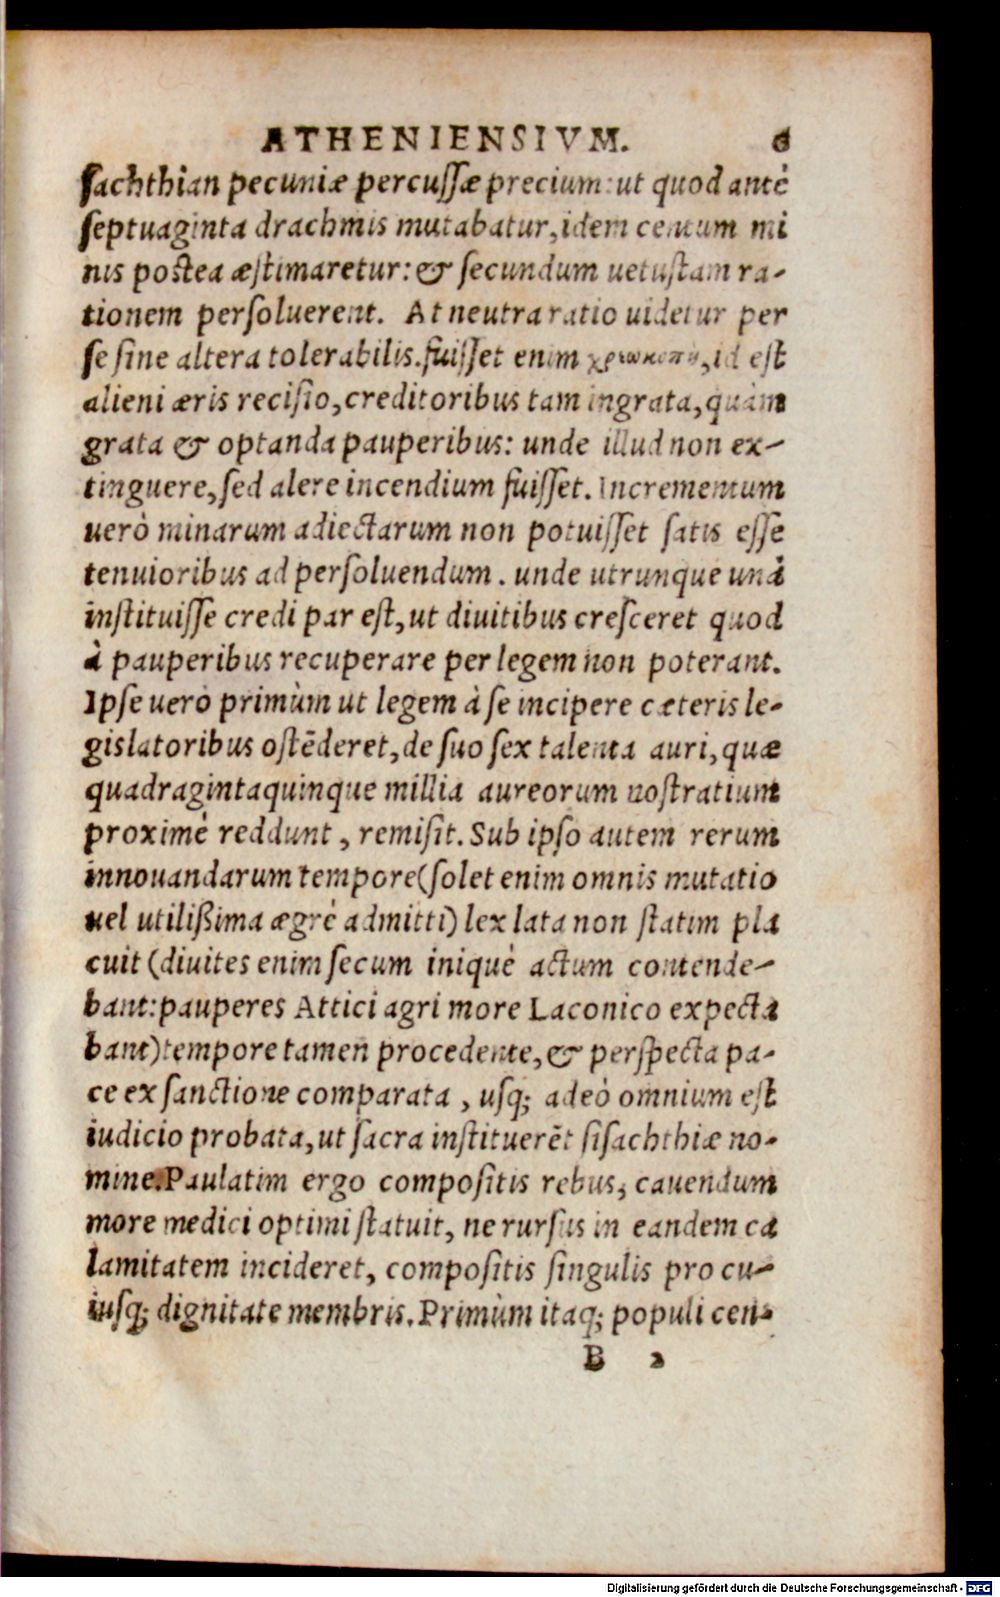 ATHENIENSIVM. 6
sachthian pecuniæ percussæ precium: ut quod antè
septuaginta drachmis mutabatur, idem centum mi
nis postea æstimaretur: & secundum uetustam ra-
tionem persoluerent. At neutra ratio uidetur per
se sine altera tolerabilis. fuisset enim χρεωκοπη, id est
alieni æris recisio, creditoribus tam ingrata, quàm
grata & optanda pauperibus: unde illud non ex-
tinguere, sed alere incendium fuisset. Incrementum
uerò minarum adiectarum non potuisset satis esse
tenuioribus ad persoluendum. unde utrunque unà
instituisse credi par est, ut diuitibus cresceret quod
à pauperibus recuperare per legem non poterant.
Ipse uerò primùm ut legem à se incipere cæteris le-
gislatoribus ostēderet, de suo sex talenta auri, quæ
quadragintaquinque millia aureorum nostratium
proximè reddunt, remisit. Sub ipso autem rerum
innouandarum tempore (solet enim omnis mutatio
uel utilißima ægrè admitti) lex lata non statim pla
cuit (diuites enim secum iniquè actum contende-
bant: pauperes Attici agri more Laconico expecta
bant) tempore tamen procedente, & perspecta pa-
ce ex sanctione comparata, usq; adeò omnium est
iudicio probata, ut sacra instituerēt sisachthiæ no-
mine. Paulatim ergo compositis rebus, cauendum
more medici optimi statuit, ne rursus in eandem ca
lamitatem incideret, compositis singulis pro cu-
iusq; dignitate membris. Primùm itaq; populi cen-
B 2
Digitalisierung gefördert durch die Deutsche Forschungsgemeinschaft - DFG